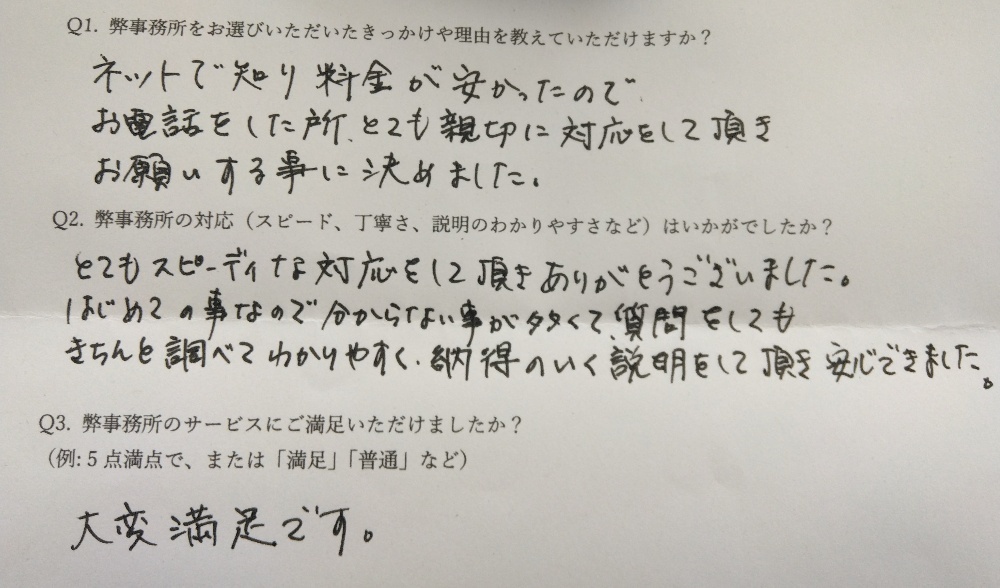 Q1. 弊事務所をお選びいただいたきっかけや理由を教えていただけますか？
ネットで知り料金が安かったので
お電話をした所、とても親切に対応をして頂き
お願いする事に決めました。
Q2. 弊事務所の対応（スピード、丁寧さ、説明のわかりやすさなど）はいかがでしたか？
とてもスピーディな対応をして頂きありがとうございました。
はじめての事なので分からない事が多くて、質問をしても
きちんと調べてわかりやすく、納得のいく説明をして頂き安心できました。
Q3. 弊事務所のサービスにご満足いただけましたか？
（例: 5 点満点で、または「満足」「普通」など）
大変満足です。